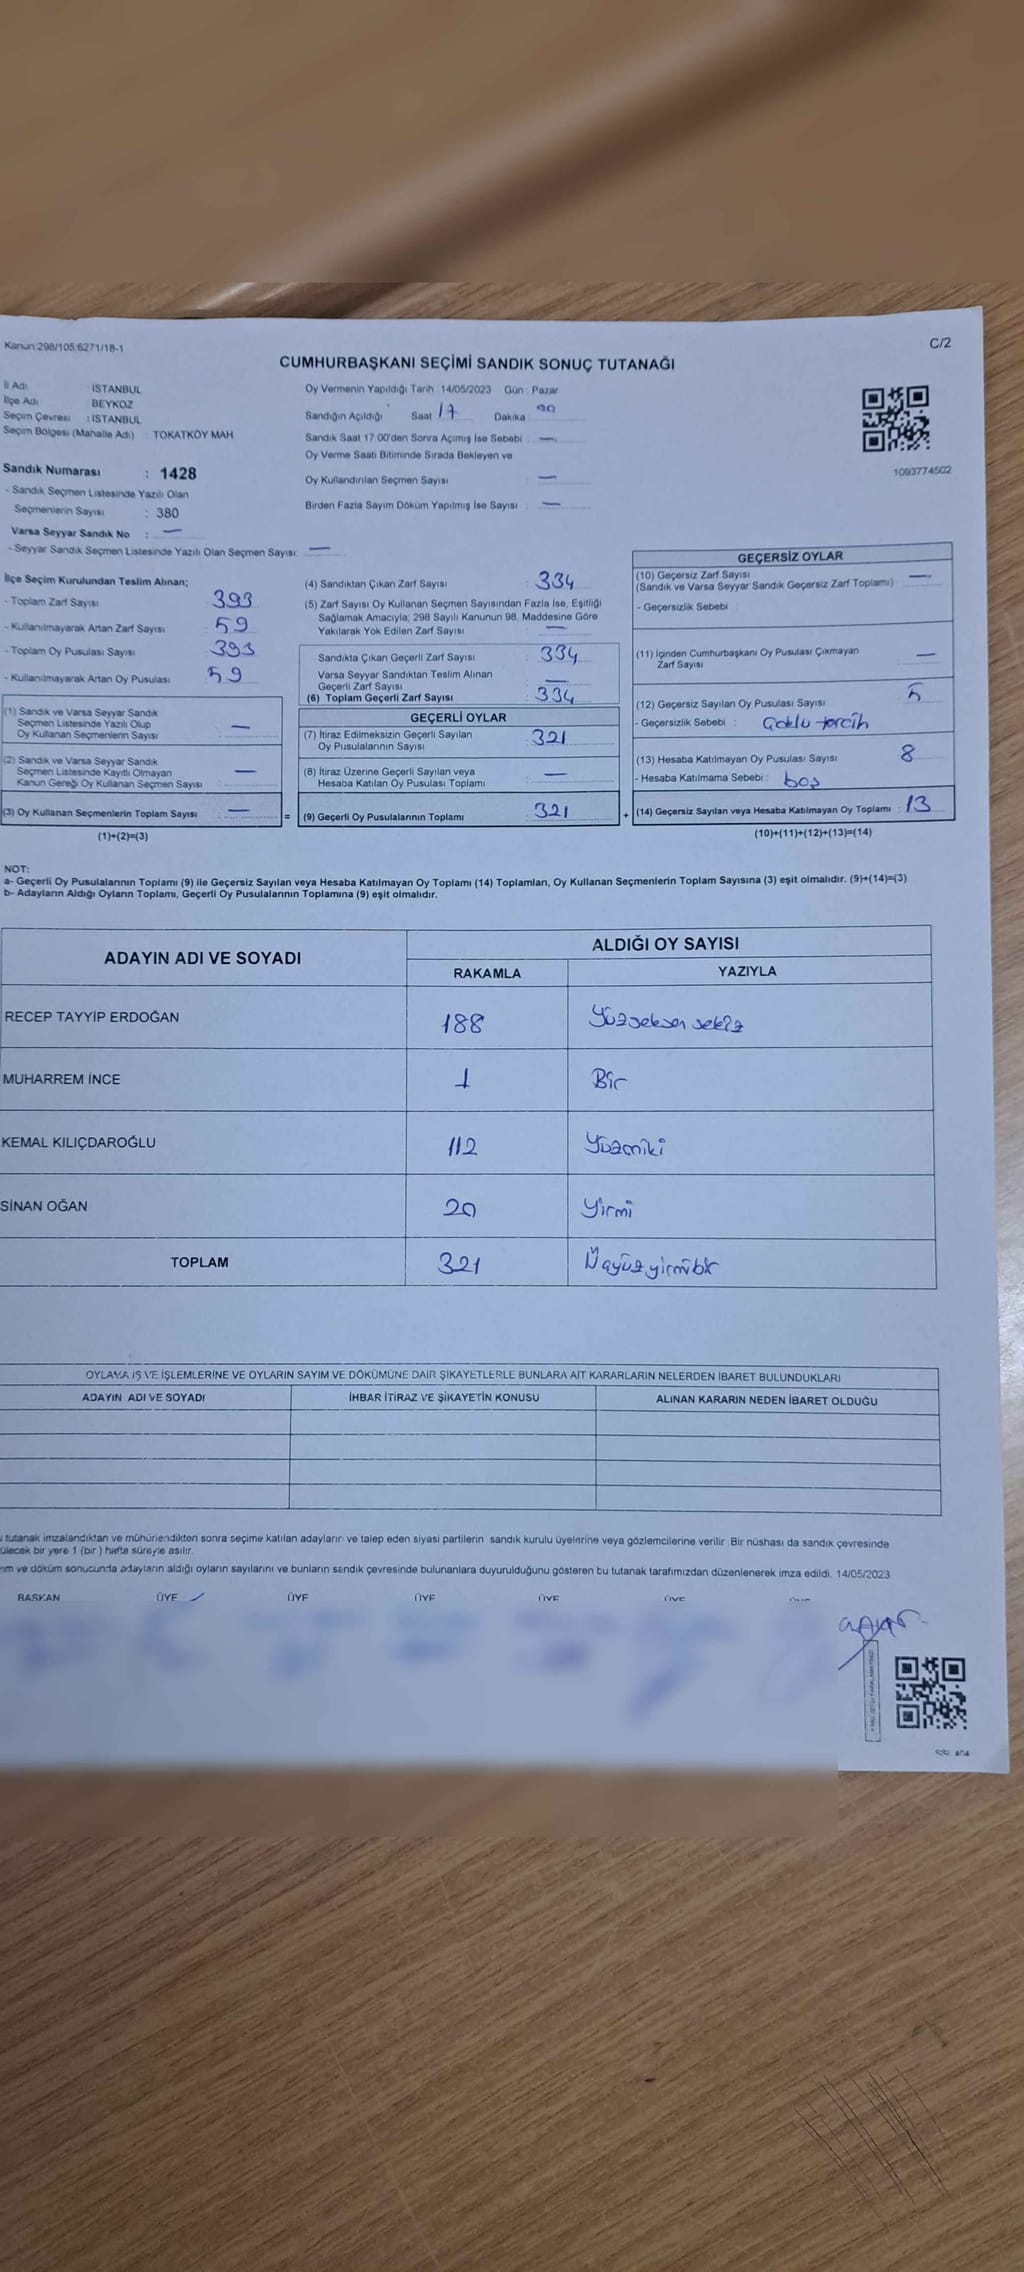 Kanun:298/105,6271/18-1
C/2
CUMHURBAŞKANI SEÇİMİ SANDIK SONUÇ TUTANAĞI
İl Adı : İSTANBUL
İlçe Adı : BEYKOZ
Seçim Çevresi : İSTANBUL
Seçim Bölgesi (Mahalle Adı) : TOKATKÖY MAH
Sandık Numarası : 1428
- Sandık Seçmen Listesinde Yazılı Olan
Seçmenlerin Sayısı : 380
Varsa Seyyar Sandık No : —
- Seyyar Sandık Seçmen Listesinde Yazılı Olan Seçmen Sayısı: —
Oy Vermenin Yapıldığı Tarih : 14/05/2023 Gün : Pazar
Sandığın Açıldığı Saat 17 Dakika 00
Sandık Saat 17:00'den Sonra Açımış İse Sebebi : —
Oy Verme Saati Bitiminde Sırada Bekleyen ve
Oy Kullandırılan Seçmen Sayısı : —
Birden Fazla Sayım Döküm Yapılmış İse Sayısı : —
1093774502
İlçe Seçim Kurulundan Teslim Alınan;
- Toplam Zarf Sayısı : 393
- Kullanılmayarak Artan Zarf Sayısı : 59
- Toplam Oy Pusulası Sayısı : 393
- Kullanılmayarak Artan Oy Pusulası : 59
(1) Sandık ve Varsa Seyyar Sandık
Seçmen Listesinde Yazılı Olup
Oy Kullanan Seçmenlerin Sayısı : —
(2) Sandık ve Varsa Seyyar Sandık
Seçmen Listesinde Kayıtlı Olmayan
Kanun Gereği Oy Kullanan Seçmen Sayısı : —
(3) Oy Kullanan Seçmenlerin Toplam Sayısı : —
(1)+(2)=(3)
(4) Sandıktan Çıkan Zarf Sayısı : 334
(5) Zarf Sayısı Oy Kullanan Seçmen Sayısından Fazla İse, Eşitliği
Sağlamak Amacıyla; 298 Sayılı Kanunun 98. Maddesine Göre
Yakılarak Yok Edilen Zarf Sayısı : —
Sandıkta Çıkan Geçerli Zarf Sayısı : 334
Varsa Seyyar Sandıktan Teslim Alınan
Geçerli Zarf Sayısı : —
(6) Toplam Geçerli Zarf Sayısı : 334
GEÇERLİ OYLAR
(7) İtiraz Edilmeksizin Geçerli Sayılan
Oy Pusulalarının Sayısı : 321
(8) İtiraz Üzerine Geçerli Sayılan veya
Hesaba Katılan Oy Pusulası Toplamı : —
= (9) Geçerli Oy Pusulalarının Toplamı : 321 +
GEÇERSİZ OYLAR
(10) Geçersiz Zarf Sayısı : —
(Sandık ve Varsa Seyyar Sandık Geçersiz Zarf Toplamı)
- Geçersizlik Sebebi :
(11) İçinden Cumhurbaşkanı Oy Pusulası Çıkmayan
Zarf Sayısı : —
(12) Geçersiz Sayılan Oy Pusulası Sayısı : 5
- Geçersizlik Sebebi : Çoklu tercih
(13) Hesaba Katılmayan Oy Pusulası Sayısı : 8
- Hesaba Katılmama Sebebi : boş
(14) Geçersiz Sayılan veya Hesaba Katılmayan Oy Toplamı : 13
(10)+(11)+(12)+(13)=(14)
NOT:
a- Geçerli Oy Pusulalarının Toplamı (9) ile Geçersiz Sayılan veya Hesaba Katılmayan Oy Toplamı (14) Toplamları, Oy Kullanan Seçmenlerin Toplam Sayısına (3) eşit olmalıdır. (9)+(14)=(3)
b- Adayların Aldığı Oyların Toplamı, Geçerli Oy Pusulalarının Toplamına (9) eşit olmalıdır.
ADAYIN ADI VE SOYADI
ALDIĞI OY SAYISI
RAKAMLA YAZIYLA
RECEP TAYYİP ERDOĞAN 188 Yüzseksen sekiz
MUHARREM İNCE 1 Bir
KEMAL KILIÇDAROĞLU 112 Yüzoniki
SİNAN OĞAN 20 Yirmi
TOPLAM 321 Üçyüzyirmibir
OYLAMA İŞ VE İŞLEMLERİNE VE OYLARIN SAYIM VE DÖKÜMÜNE DAİR ŞİKAYETLERLE BUNLARA AİT KARARLARIN NELERDEN İBARET BULUNDUKLARI
ADAYIN ADI VE SOYADI İHBAR İTİRAZ VE ŞİKAYETİN KONUSU ALINAN KARARIN NEDEN İBARET OLDUĞU
tutanak imzalandıktan ve mühürlendikten sonra seçime katılan adayların ve talep eden siyasi partilerin sandık kurulu üyelerine veya gözlemcilerine verilir. Bir nüshası da sandık çevresinde
ülecek bir yere 1 (bir) hafta süreyle asılır.
ım ve döküm sonucunda adayların aldığı oyların sayılarını ve bunların sandık çevresinde bulunanlara duyurulduğunu gösteren bu tutanak tarafımızdan düzenlenerek imza edildi. 14/05/2023
BAŞKAN ÜYE ÜYE ÜYE ÜYE ÜYE